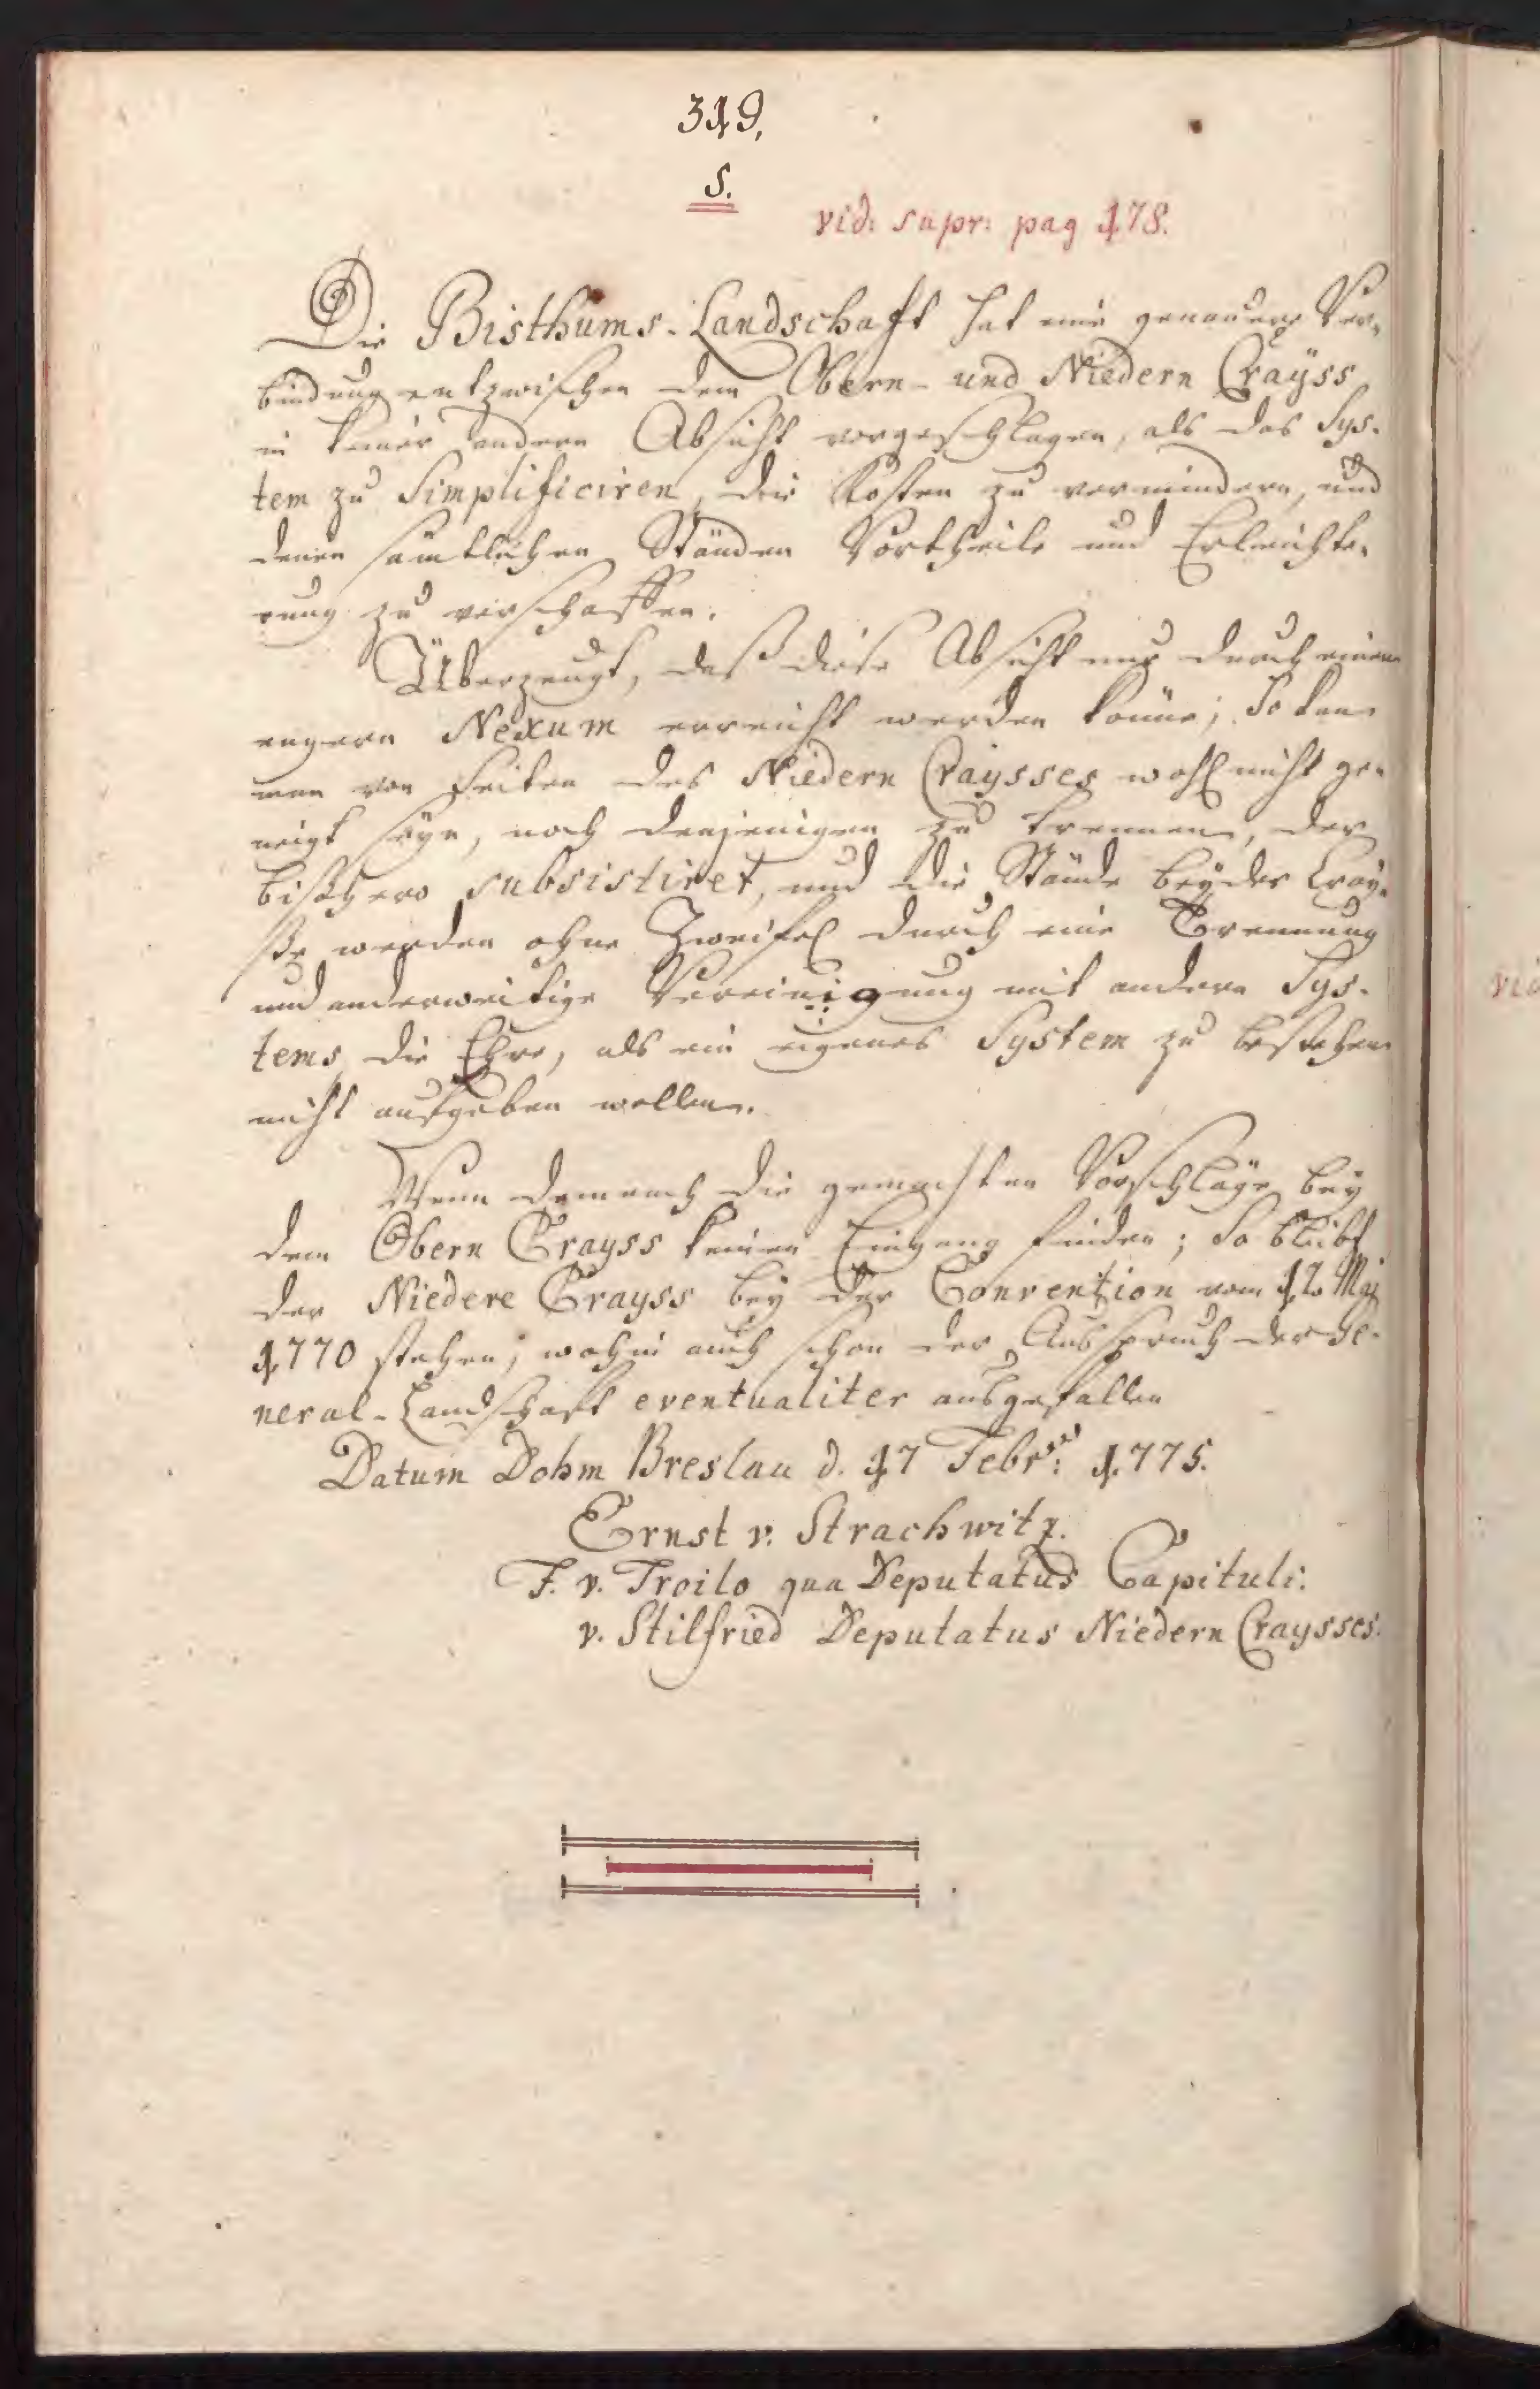 319,
S.
vid: supr: pag 178.
Die Bisthums-Landschaft hat eine genauere Ver-
bindung entzwischen dem Obern- und Niedern Crayss
in keiner andern Absicht vorgeschlagen, als das Sys-
tem zu Simplificiren, die Kosten zu vermindern, und
denen sämtlichen Ständen Vortheile und Erleichte-
rung zu verschaffen.
Überzeugt, daß diese Absicht nur durch einen
engern Nexum erreicht werden könne; So kan
man von Seiten des Niedern Craysses wohl nicht ge-
neigt seyn, noch denjenigen zu trennen, der
bißhero subsistiret, und die Stände beyder Cray-
ße werden ohne Zweifel durch eine Trennung
und anderweitige Vereinigung mit andern Sys-
tems, die Ehre, als ein eigenes System zu bestehen
nicht aufgeben wollen.
Wenn demnach die gemachten Vorschläge bey
dem Obern Crayss keinen Eingang finden; So bleibt
der Niedere Crayss bey der Convention vom 12. Maj
1770 stehen, wohin auch schon der Ausspruch der Ge-
neral-Landschaft eventualiter ausgefallen
Datum Dohm Breslau d. 17 Febr: 1775.
Ernst v. Strachwitz.
F. v. Troilo qua Deputatus Capituli:
v. Stilfried Deputatus Niedern Craysses.
vid